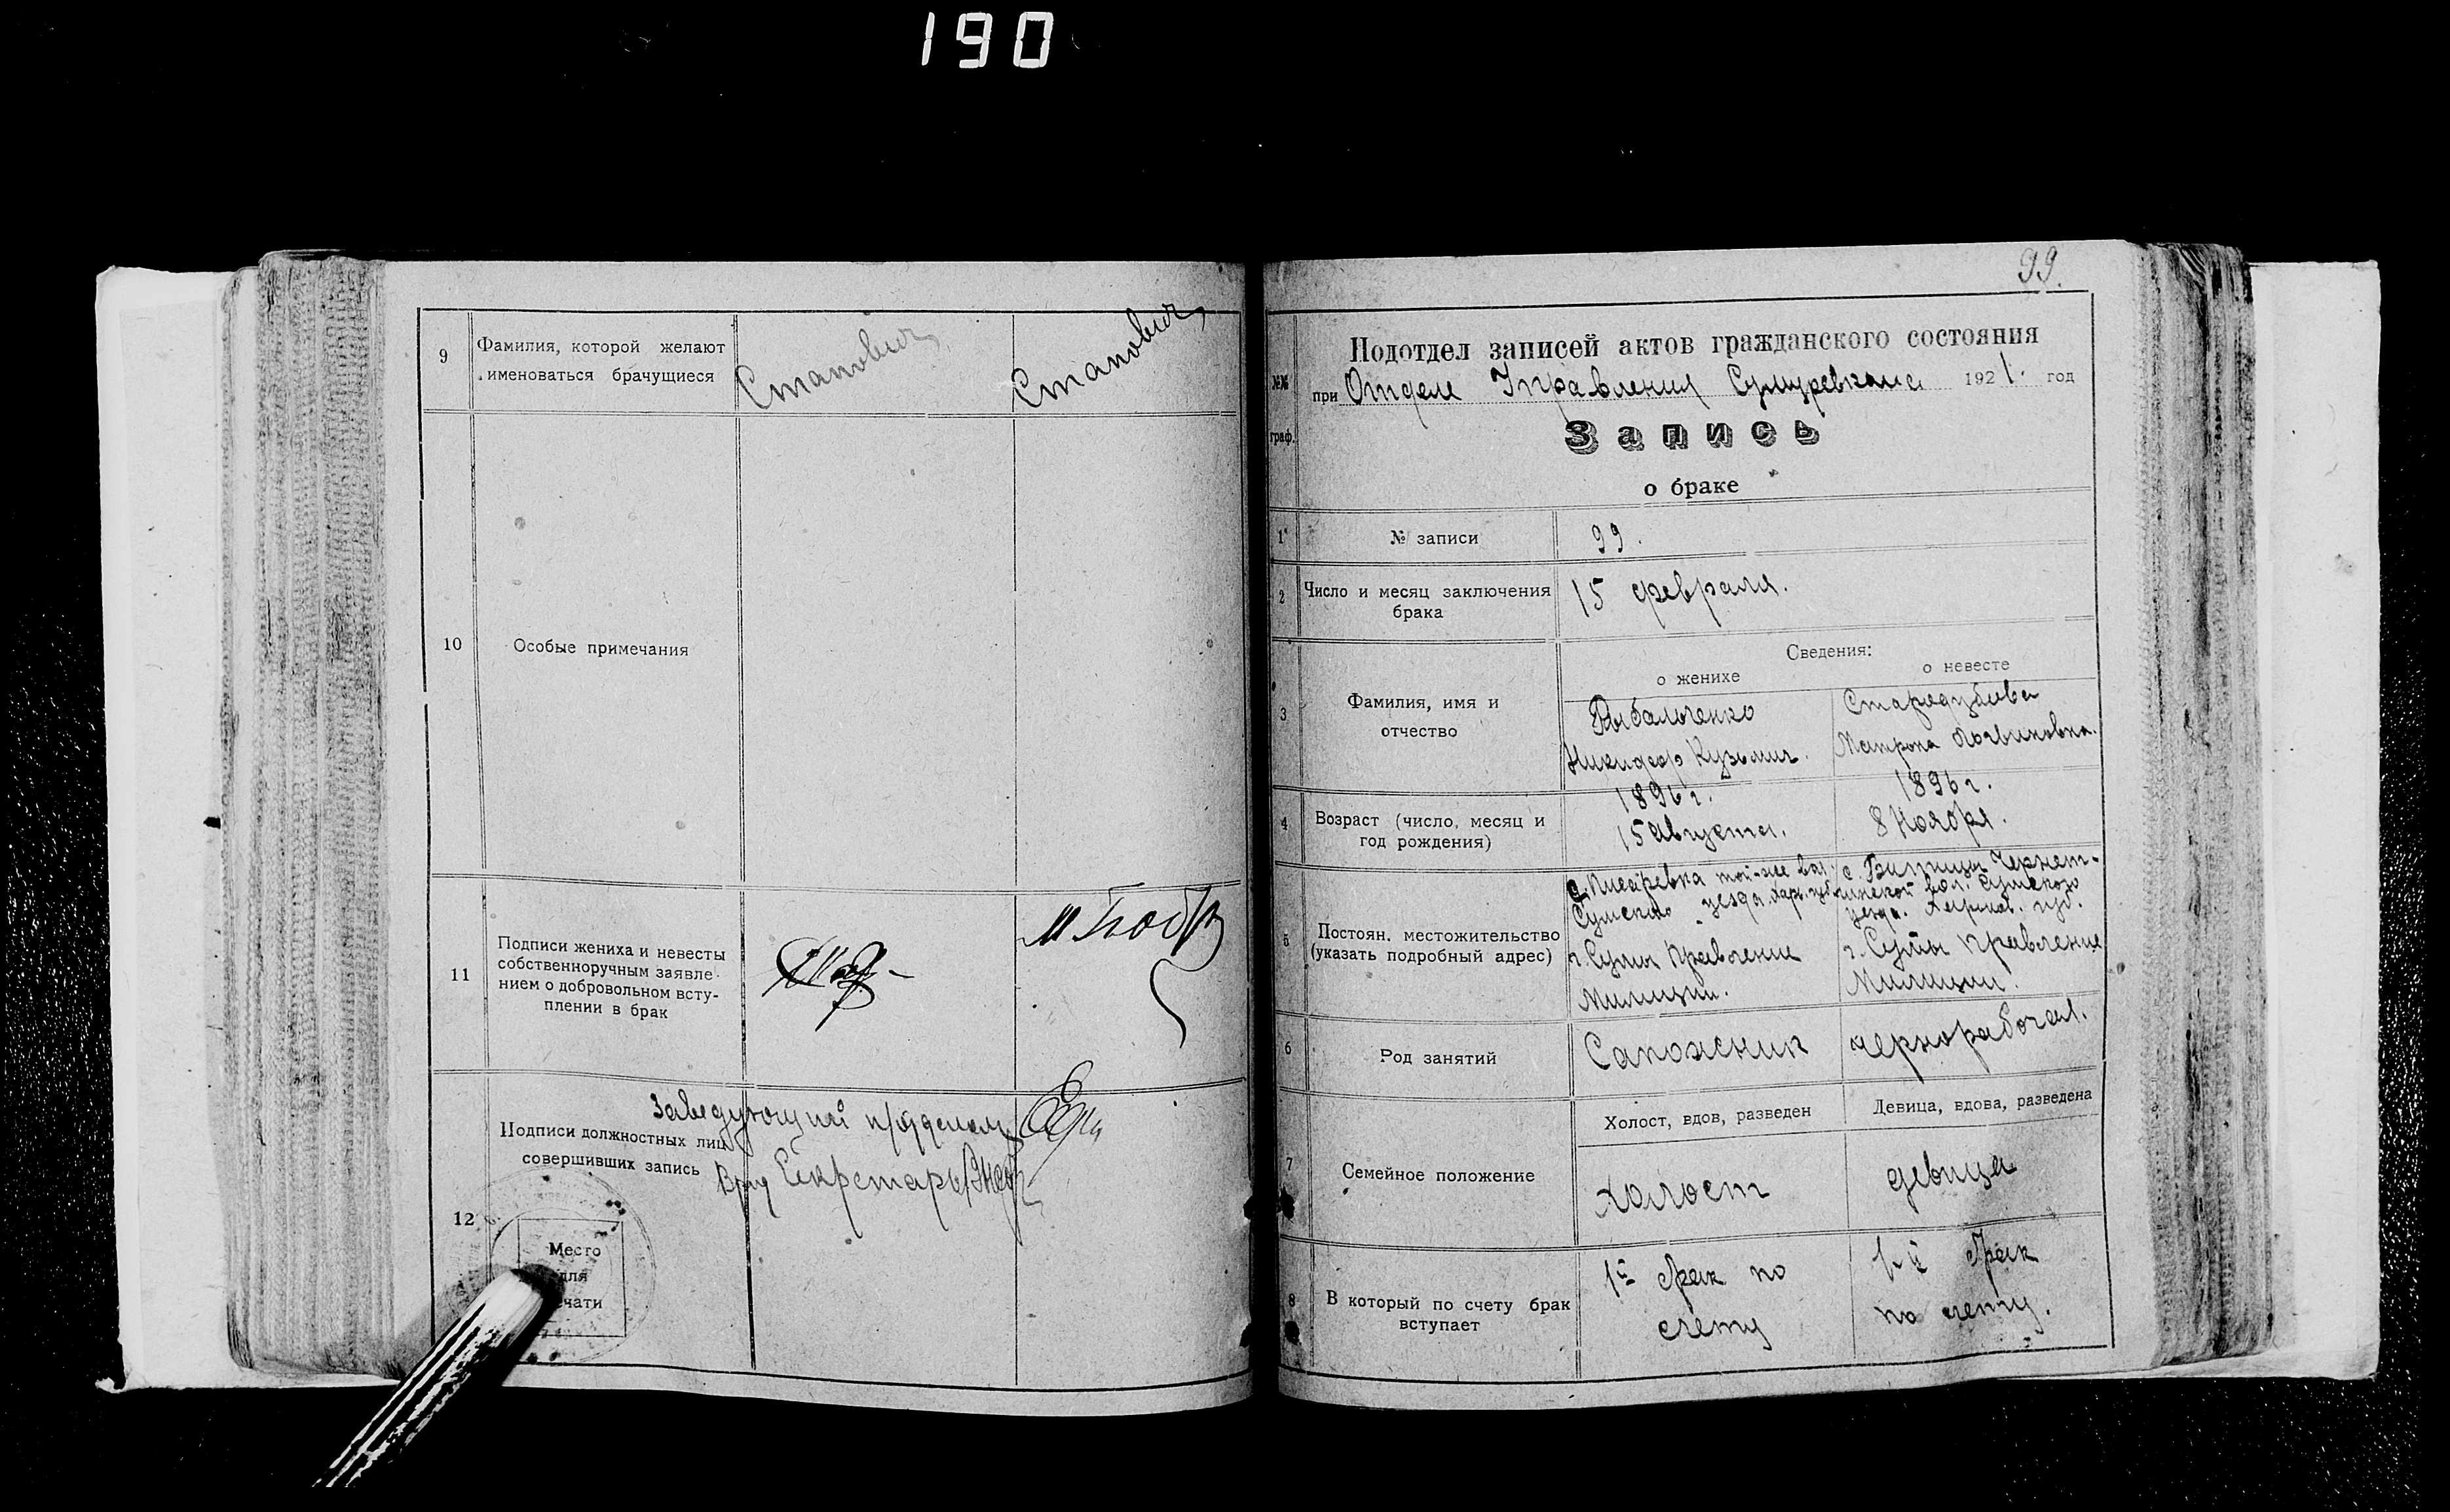 190
9
Фамилия, которой желают
именоваться брачущиеся
Станович
Станович
10
Особые примечания
11
Подписи жениха и невесты
собственноручным заявле-
нием о добровольном всту-
плении в брак
Заведующий
Подписи должностных лиц
совершивших запись
Врид Секретарь
12
Место
для
чати
99.
№№
граф.
Подотдел записей актов гражданского состояния
при Отделе Управления Сумуревкома 1921. год
Запись
о браке
1
№ записи
99.
2
Число и месяц заключения
брака
15 февраля.
Сведения:
о женихе
о невесте
3
Фамилия, имя и
отчество
Рыбальченко
Никифор Кузьмич.
Стародубова
Матрона Логвиновна.
4
Возраст (число, месяц и
год рождения)
1896 г.
15 Августа.
1896 г.
8 Ноября.
5
Постоян. местожительство
(указать подробный адрес)
с. Писаревка той-же вол.
Сумского уезда Харк. губ.
г. Сумы Правление
Милиции.
с. Битица Чернет-
чинской вол. Сумского
уезда. Харьков. губ.
г. Сумы Правление
Милиции.
6
Род занятий
Сапожник
чернорабочая.
7
Семейное положение
Холост, вдов, разведен
Девица, вдова, разведена
холост
девица
8
В который по счету брак
вступает
1й брак по
счету
1-й брак
по счету.